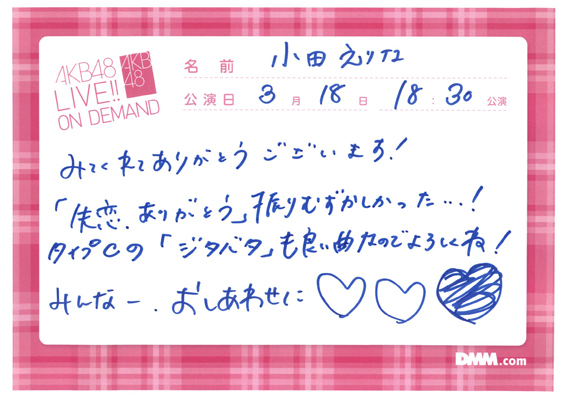 AKB48
LIVE!!
ON DEMAND
AKB
48
名前 小田えりな
公演日 3月 18日 18:30 公演
みてくれてありがとうございます!
「失恋、ありがとう」振りむずかしかった…!
タイプCの「ジタバタ」も良い曲なのでよろしくね!
みんなー、おしあわせに
DMM.com